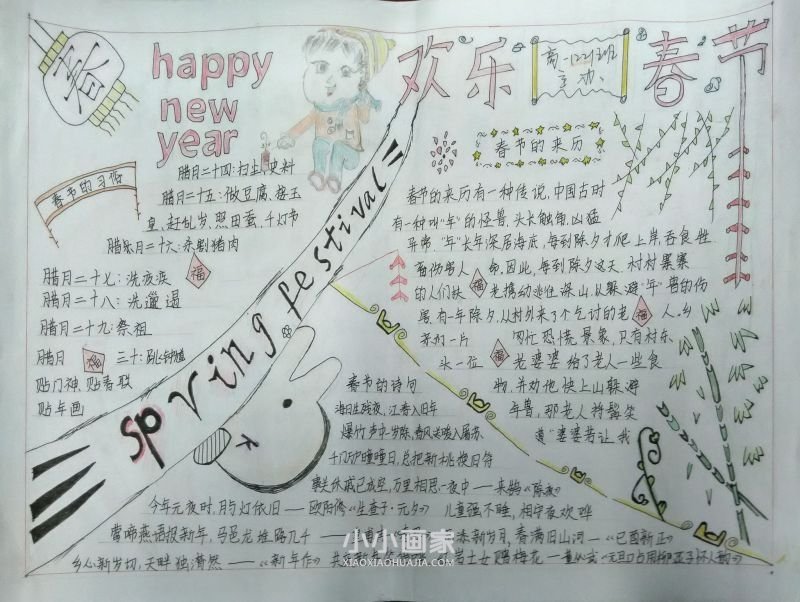 春
happy
new
year
欢乐春节
高一122班
主办
春节的习俗
腊月二十四:扫尘
腊月二十五:做豆腐、接玉
皇、赶乱岁、照田蚕、千灯节
腊月二十六:杀割猪肉
腊月二十七:洗夜浴
腊月二十八:洗邋遢
腊月二十九:祭祖
腊月 三十:跳钟馗
贴门神、贴春联
贴年画
福
福
spring festival"
春节的来历
春节的来历有一种传说,中国古时
有一种叫"年"的怪兽,头长触角,凶猛
异常,"年"长年深居海底,每到除夕才爬上岸,吞食牲
畜伤害人 命,因此,每到除夕这天,村村寨寨
的人们扶 老携幼逃往深山,以躲避"年"兽的伤
害,有一年除夕,从村外来了个乞讨的老 人,乡
亲们一片 匆忙恐慌景象,只有村东
头一位 老婆婆给了老人一些食
物,并劝他快上山躲避
年兽,那老人捋髯笑
道"婆婆若让我
福
福
福
春节的诗句
海日生残夜,江春入旧年
爆竹声中一岁除,春风送暖入屠苏
千门万户曈曈日,总把新桃换旧符
事关休戚已成空,万里相思一夜中——来鹄《除夜》
今年元夜时,月与灯依旧——欧阳修《生查子·元夕》 儿童强不睡,相守夜欢哗
添新岁月,春满旧山河——《己酉新正》
乡心新岁切,天畔独潸然——《新年作》
小小画家
XIAOXIAOHUAJIA.COM